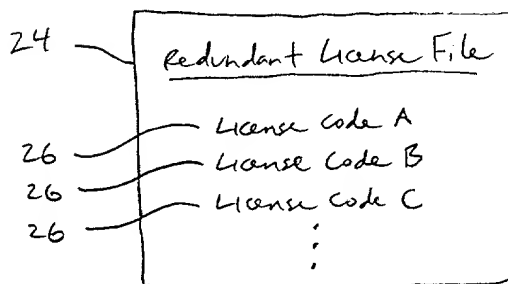 24 Redundant License File
License Code A
26 License Code B
26 License Code C
26